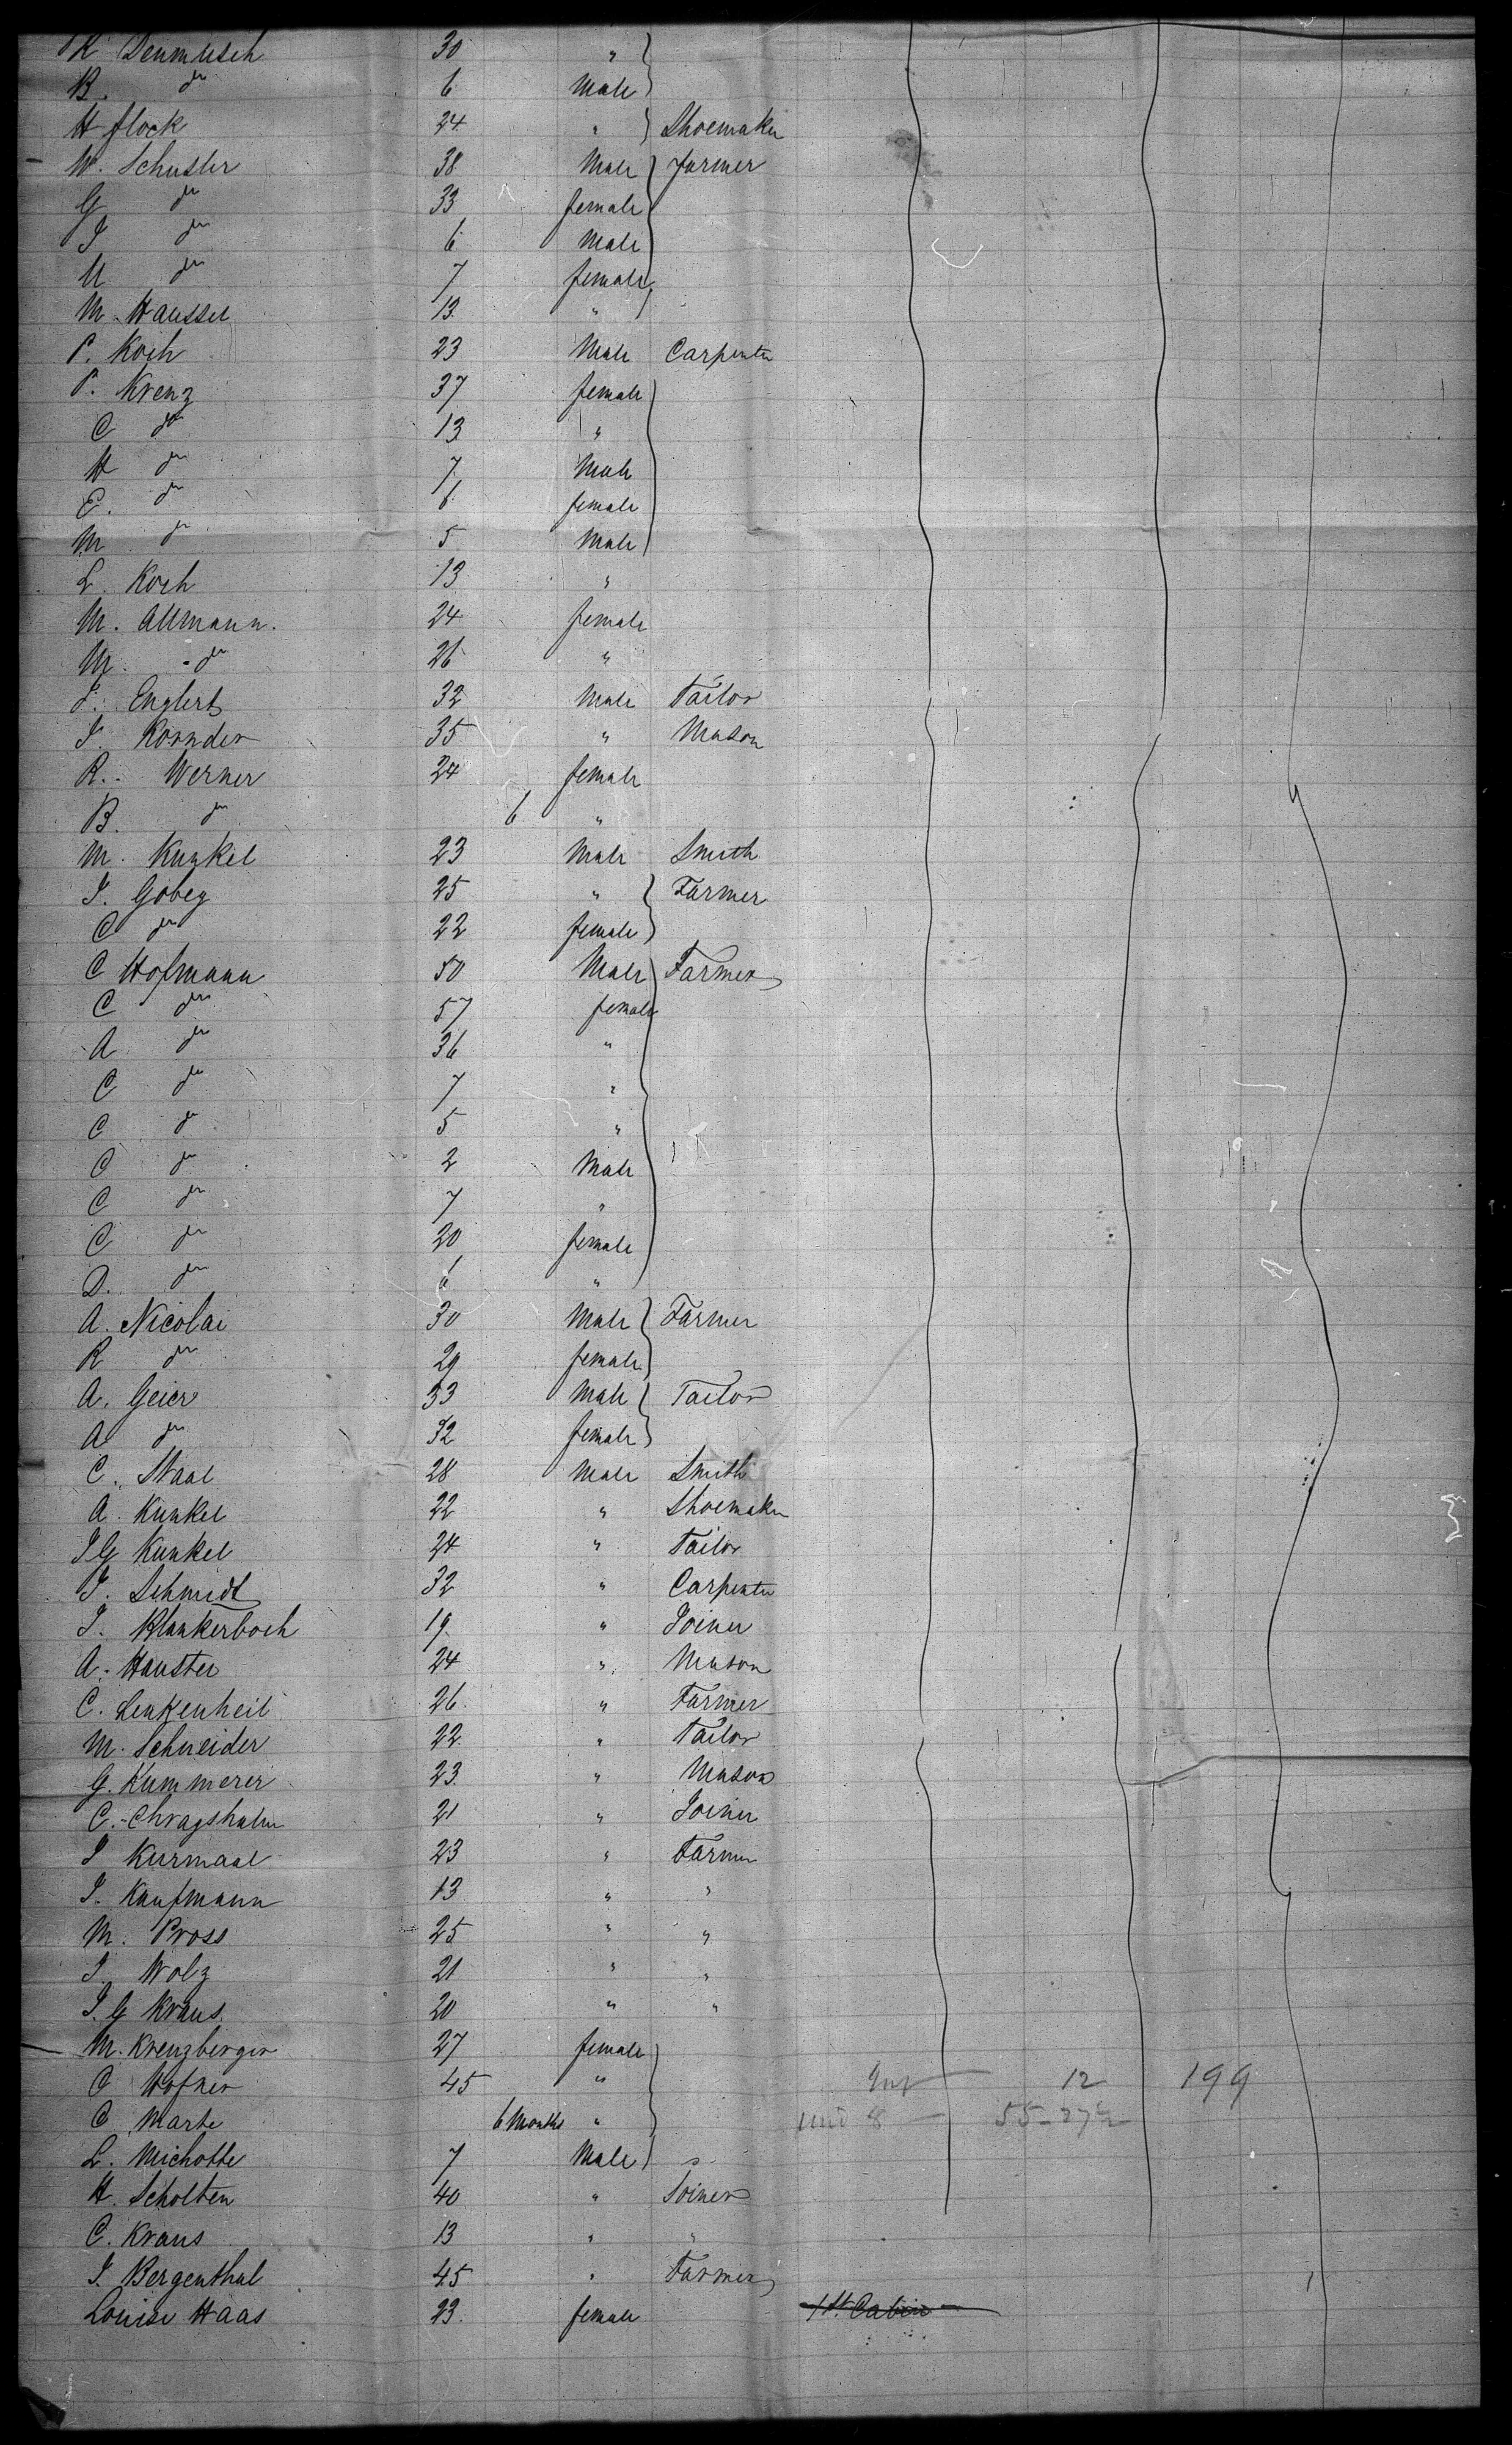 K Denmusch 30 "
B. do 6 Male
H flock 24 " Shoemaker
W. Schuster 38 Male farmer
G do 33 female
I do 6 Male
M do 7 female
M. Haussel 13 "
P. Koch 23 Male Carpenter
P. Krenz 37 female
C do 13 "
H do 7 Male
E. do 6 female
M do 5 Male
L. Koch 13 "
M. Allmann. 24 female
M. do 26 "
I. Englert 32 Male Tailor
I. Kornder 35 " Mason
R. Werner 24 female
B. do 6 "
M. Kunkel 23 Male Smith
I. Gobeg 25 " Farmer
C do 22 female
C Hofmann 50 Male Farmer
C do 57 female
A do 36 "
C do 7 "
C do 5 "
C do 2 Male
C do 7 "
C do 20 female
D. do 6 "
A. Nicolai 30 Male Farmer
R do 29 female
A. Geier 33 Male Tailor
A do 32 female
C. Staal 28 Male Smith
A. Kunkel 22 " Shoemaker
I G Kunkel 24 " Tailor
I. Schmidt 32 " Carpenter
I. Klankerboch 19 " Joiner
A. Hauster 24 " Mason
C. Lenkenheil 26 " Farmer
M. Schneider 22 " Tailor
G. Kummerer 23 " Mason
C. 21 " Joiner
I Kurmaal 23 " Farmer
I. Kaufmann 13 " "
M. Pross 25 " "
I. Wolz 21 " "
I. G Kraus 20 " "
M. Krenzberger 27 female
C Hofner 45 " 12 199
C Marte 6 Months " und 8 55
L. Michotte 7 Male
H. Scholten 40 " Joiner
C. Kraus 13 " "
I. Bergenthal 45 " Farmer
Louise Haas 23 female 1st Cabin